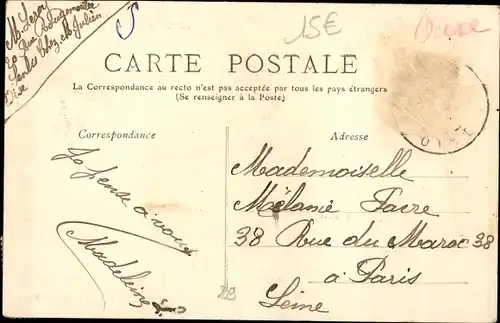 M. Leroy
Rue
Senlis chez M. Julien
Oise
15€
Oise
CARTE POSTALE
La Correspondance au recto n'est pas acceptée par tous les pays étrangers
(Se renseigner à la Poste)
Correspondance
Adresse
OISE
Je pense à vous
Madeleine
Mademoiselle
Mélanie Favre
38 Rue du Maroc 38
à Paris
Seine